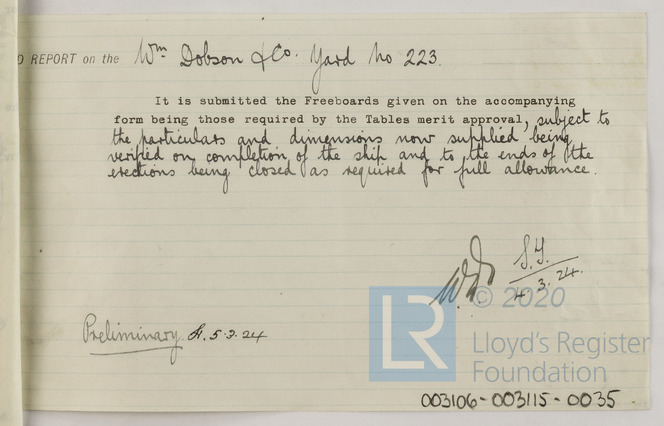 D REPORT on the Wm Dobson & Co. Yard No 223.
It is submitted the Freeboards given on the accompanying
form being those required by the Tables merit approval, subject to
the particulars and dimensions now supplied being
verified on completion of the ship and to the ends of the
erections being closed as required for full allowance.
4.3.24.
Preliminary 5.3.24
© 2020
LR
Lloyd's Register
Foundation
003106-003115-0035